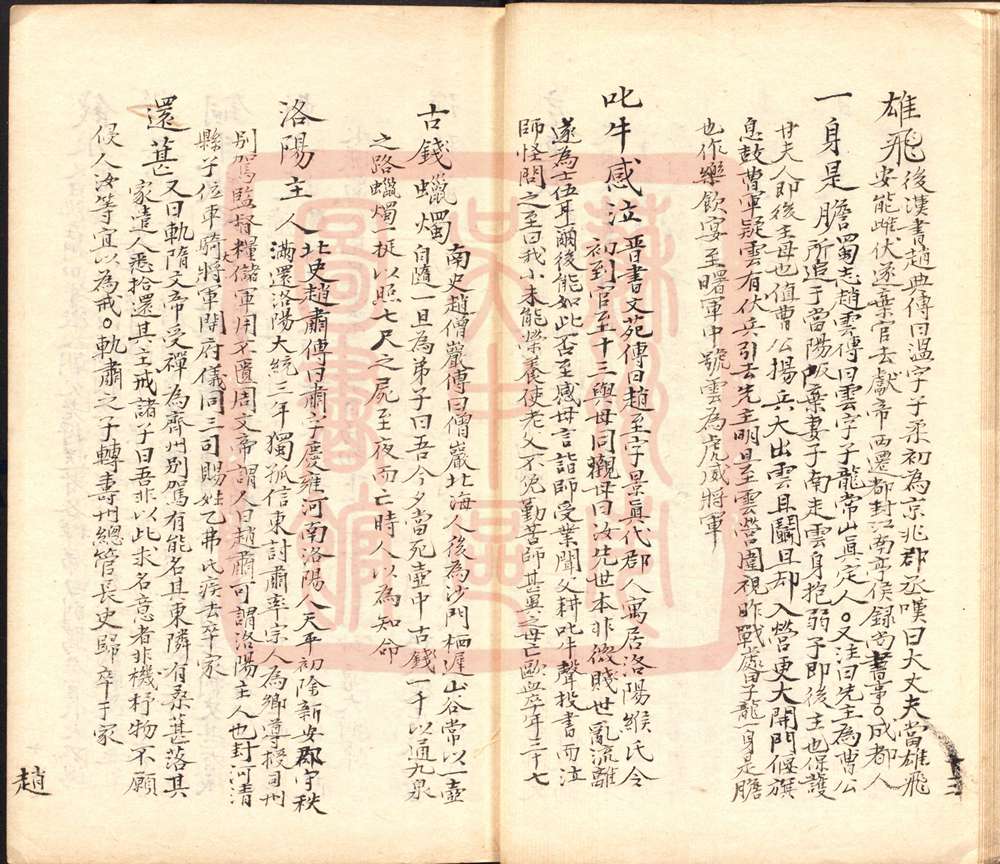 雄飛後漢書趙典傳曰溫字子柔初為京兆郡丞嘆曰大丈夫當雄飛
安能雌伏遂棄官去獻帝西遷都封江南亭侯録尚書事○成都人
一身是膽蜀志趙雲傳曰雲字子龍常山眞定人○又注曰先主為曹公
所追于當陽阪棄妻子南走雲身抱弱子即後主也保護
甘夫人即後主母也值曹公揚兵大出雲且鬬且却入營更大開門偃旗
息鼓曹軍疑雲有伏兵引去先主明旦至雲營圍視昨戰處曰子龍一身是膽
也作樂飲宴至曙軍中號雲為虎威將軍
叱牛感泣晉書文苑傳曰趙至字景眞代郡人寓居洛陽緱氏令
初到官至十三與母同觀母曰汝先世本非微賤世亂流離
遂為士伍耳爾後能如此否至感母言詣師受業聞父耕叱牛聲投書而泣
師怪問之至曰我小未能榮養使老父不免勤苦師甚異之母亡歐血卒年三十七
古錢蠟燭南史趙僧巖傳曰僧巖北海人後為沙門栖遲山谷常以一壺
自隨一旦為弟子曰吾今夕當死壺中古錢一千以通九泉
之路蠟燭一挺以照七尺之屍至夜而亡時人以為知命
洛陽主人北史趙肅傳曰肅字慶雍河南洛陽人天平初除新安郡守秩
滿還洛陽大統三年獨孤信東討肅率宗人為鄉導授司州
別駕監督糧儲軍用不匱周文帝謂人曰趙肅可謂洛陽主人也封河清
縣子位車騎大將軍開府儀同三司賜姓乙弗氏疾去卒家
還葚又曰軌隋文帝受禪為齊州別駕有能名其東隣有桑葚落其
家遣人悉拾還其主戒諸子曰吾非以此求名意者非機杼物不願
侵人汝等宜以為戒○軌肅之子轉壽州總管長史歸卒于家
趙